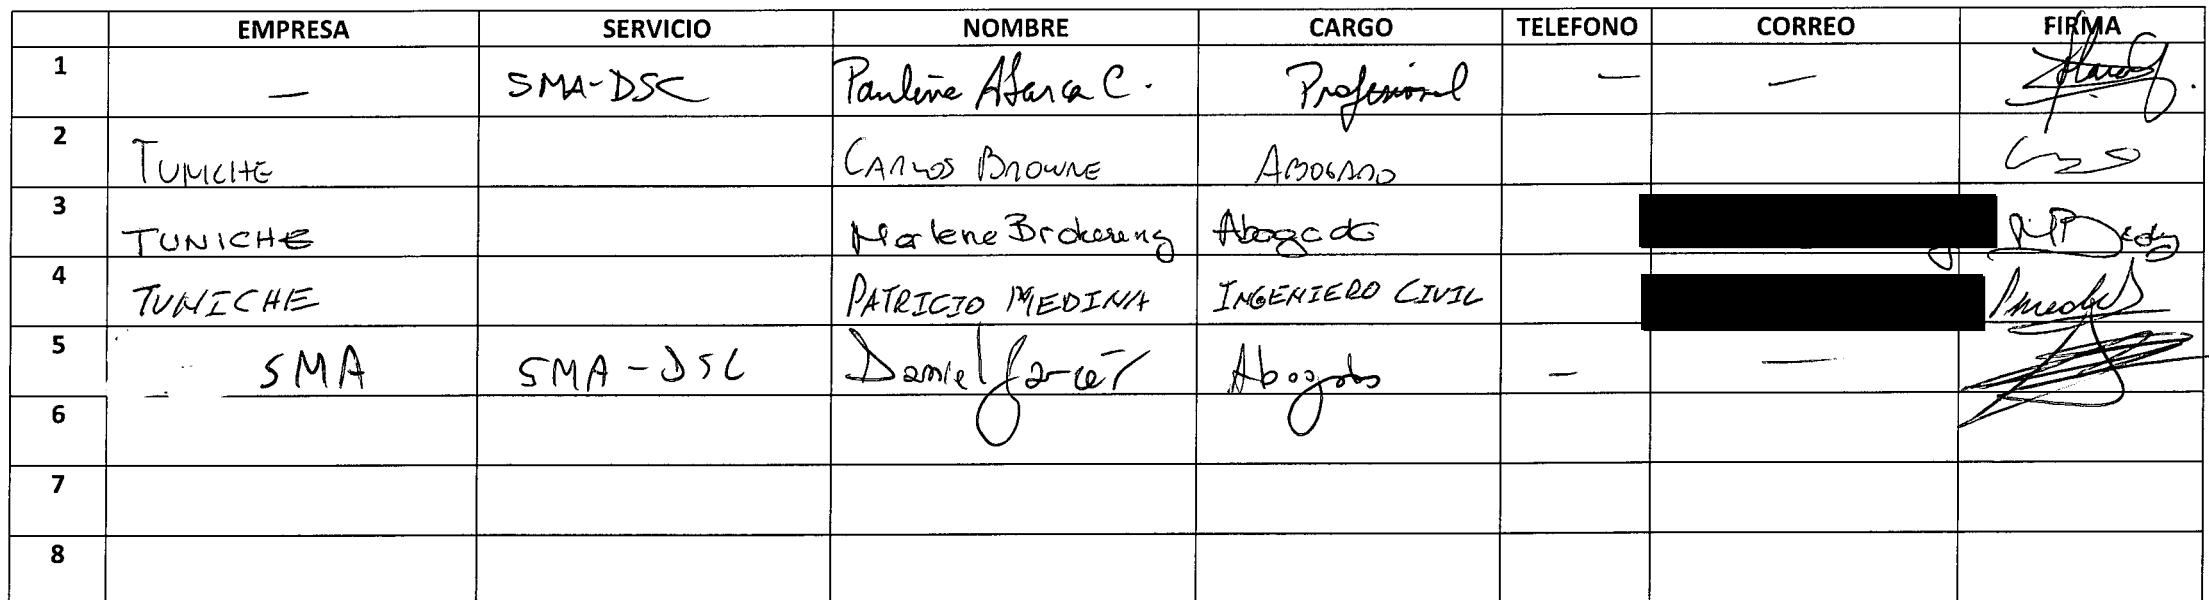 EMPRESA SERVICIO NOMBRE CARGO TELEFONO CORREO FIRMA
1 — SMA-DSC Paulina Abarca C. Profesional — —
2 TUNICHE CARLOS BROWNE ABOGADO
3 TUNICHE Marlene Brokering Abogado
4 TUNICHE PATRICIO MEDINA INGENIERO CIVIL
5 SMA SMA-DSC Daniel Garcés Abogado — —
6
7
8